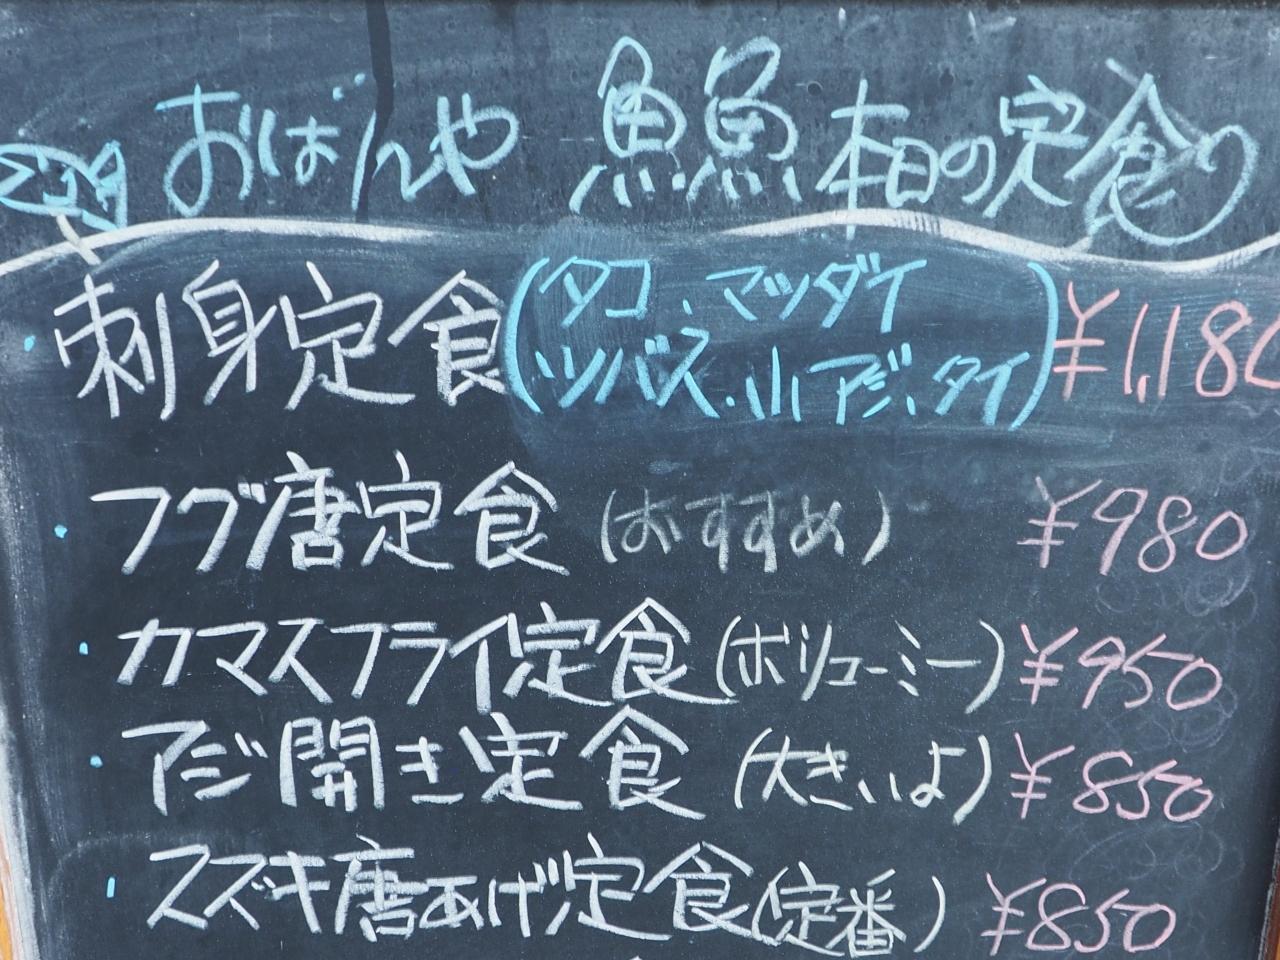 おばんや 魚魚 本日の定食り
・刺身定食(タコ、マツダイ
ツバス、小アジ、タイ) ¥1,180
・フグ唐定食 (おすすめ) ¥980
・カマスフライ定食(ボリューミー) ¥950
・アジ開き定食 (大きいよ) ¥850
・スズキ唐あげ定食(定番) ¥850